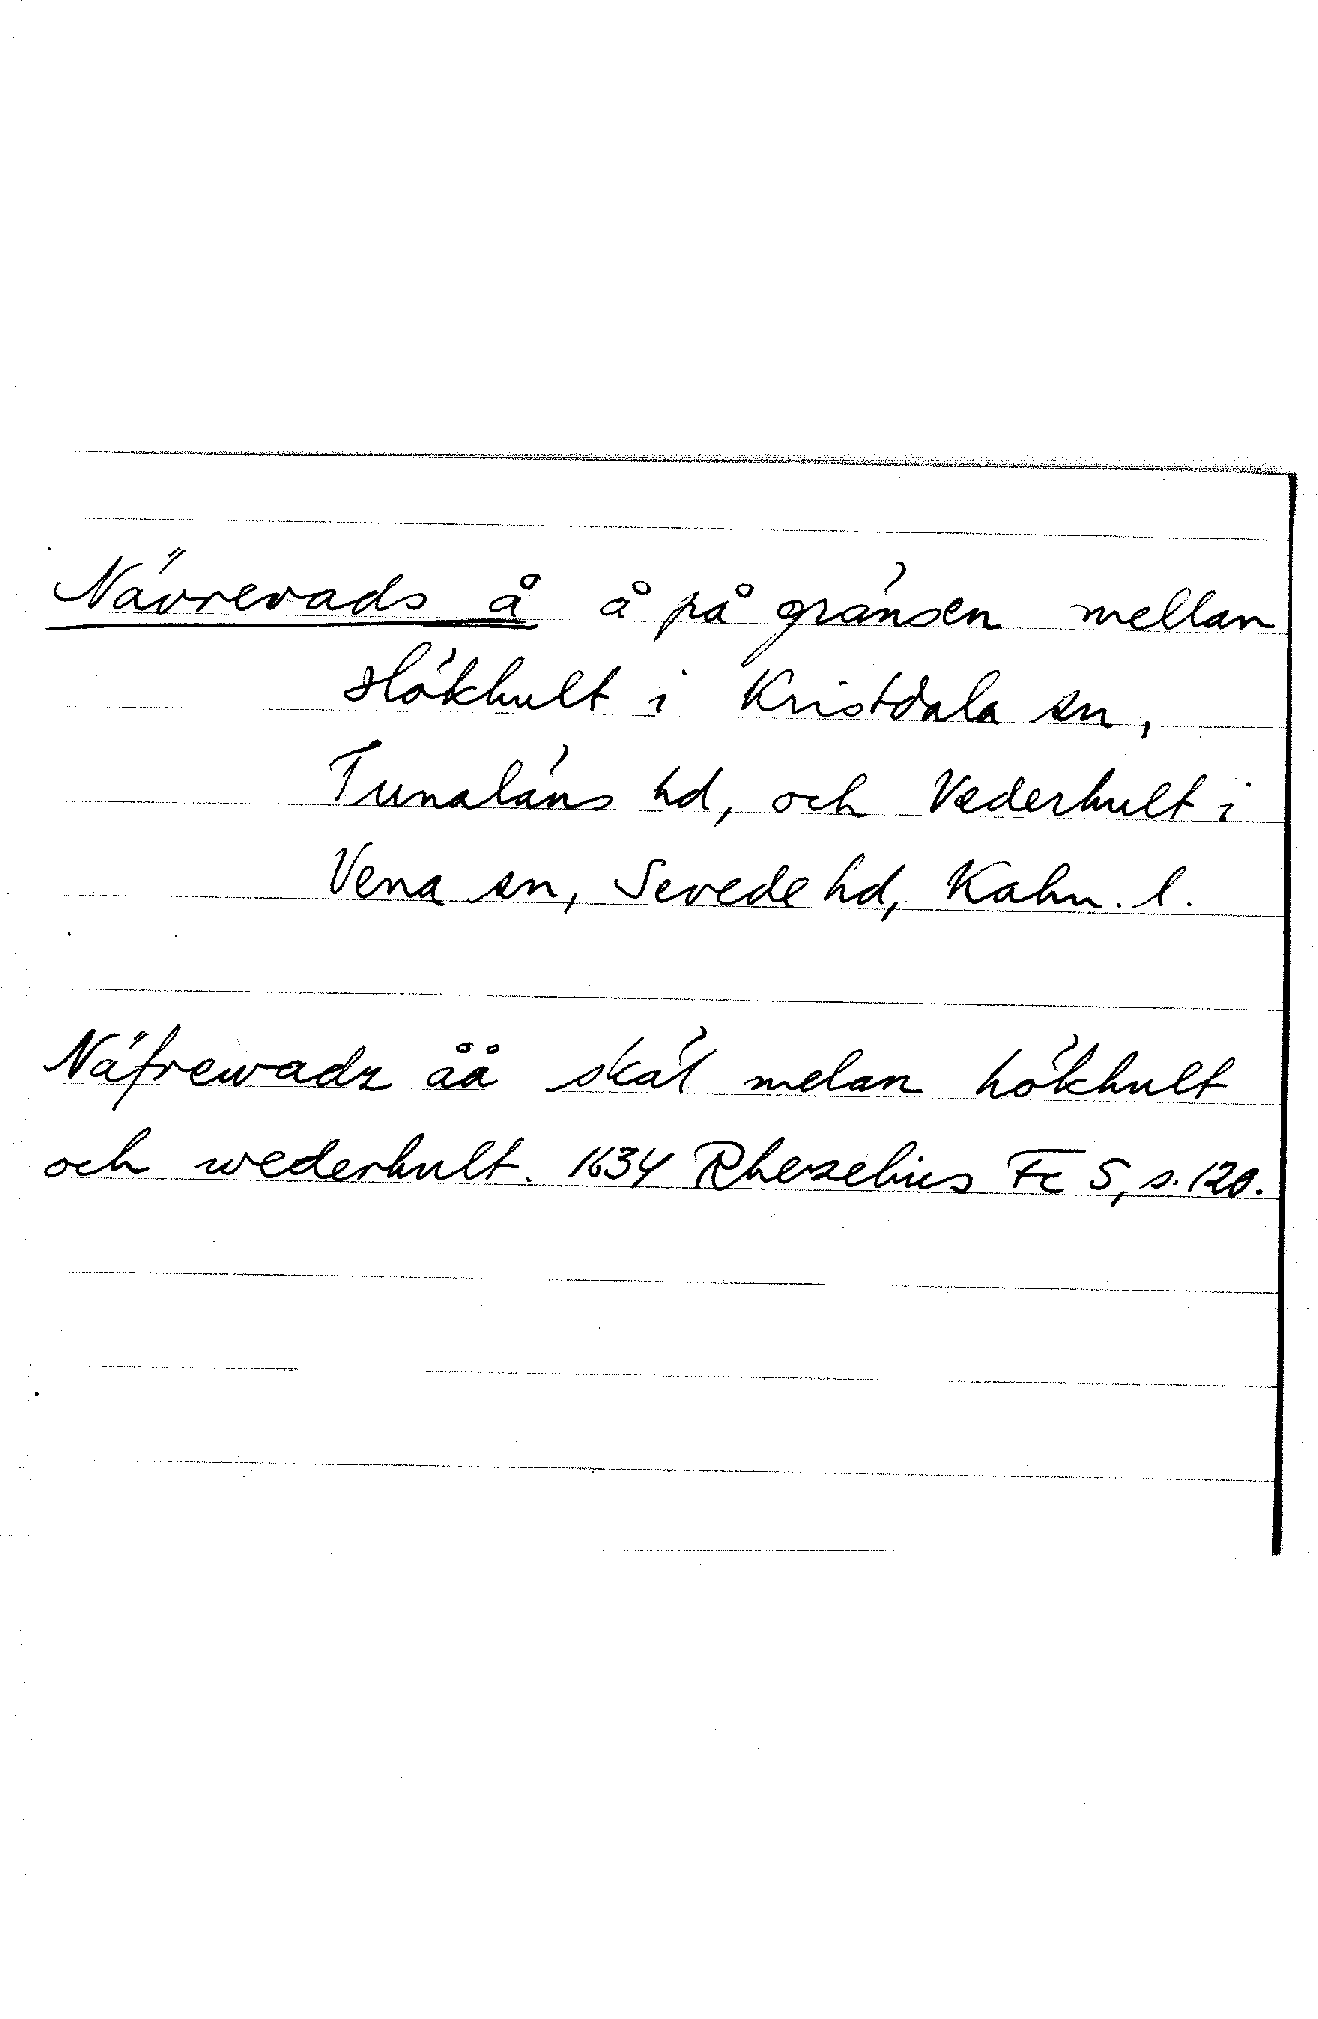 Nävrevads å å på gränsen mellan
Hökhult i Kristdala sn,
Tunaläns hd, och Vederhult i
Vena sn, Sevede hd, Kalm. l.
Näfrewadz åå skäl melan hökhult
och wederhult. 1634 Rhezelius Fc 5, s. 120.